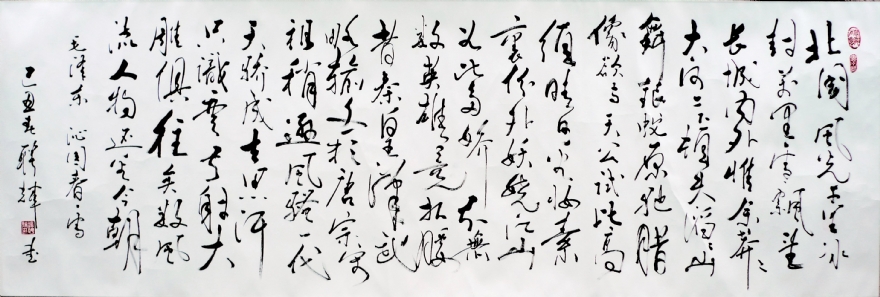 北國風光千里冰
封萬里雪飄望
長城内外惟余莽々
大河上下頓失滔々山
舞銀蛇原馳腊
像欲与天公试比高
須晴日看红妆素
裹份外妖嬈江山
如此多娇引無
数英雄竞折腰
惜秦皇漢武
略输文采唐宗宋
祖稍逊風骚一代
天骄成吉思汗
只識弯弓射大
雕俱往矣数風
流人物还看今朝
毛泽东 沁园春雪
丑春 书